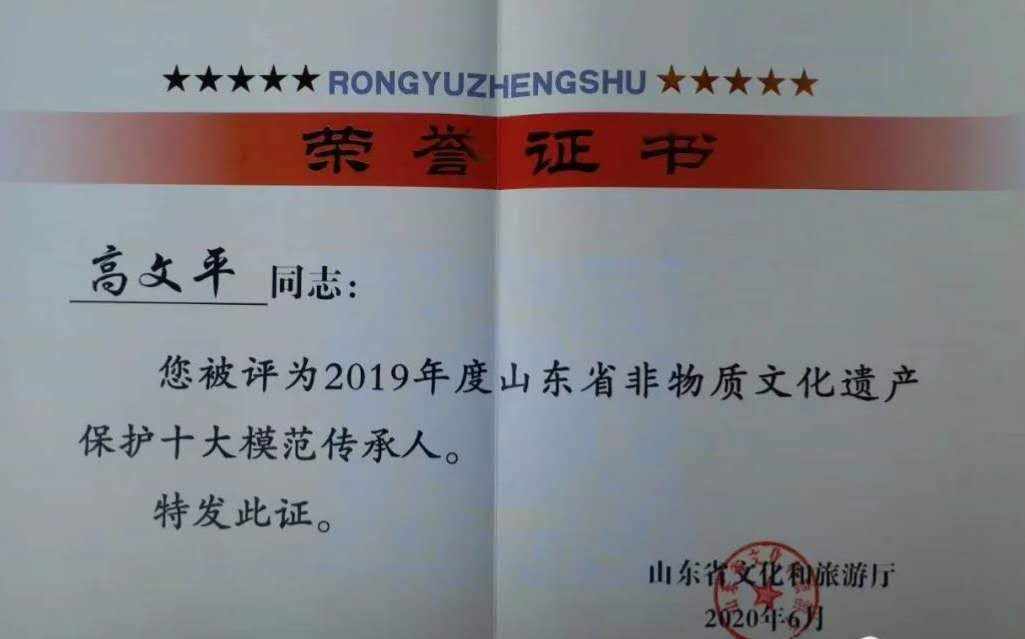 ★★★★★ RONGYUZHENGSHU ★★★★★
荣誉证书
高文平 同志：
您被评为2019年度山东省非物质文化遗产
保护十大模范传承人。
特发此证。
山东省文化和旅游厅
2020年6月